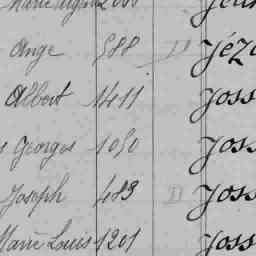 Ange 588 D Jéz
Albert 1411 Joss
Georges 1050 Joss
Joseph 483 D Joss
Marie Louis 1201 Joss